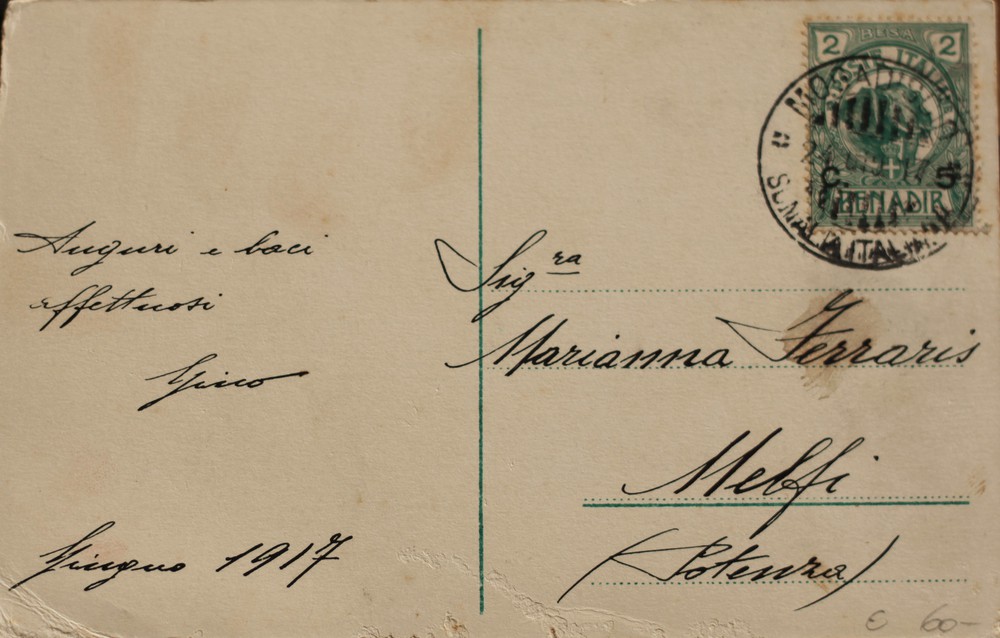 Auguri e baci
affettuosi
Gino
Giugno 1917
2 BESA 2
POSTE ITALIANE
C. 5
BENADIR
MOGADISCIO
SOMALIA ITALIANA
Sig.ra
Marianna Ferraris
Melfi
(Potenza)
€ 60-